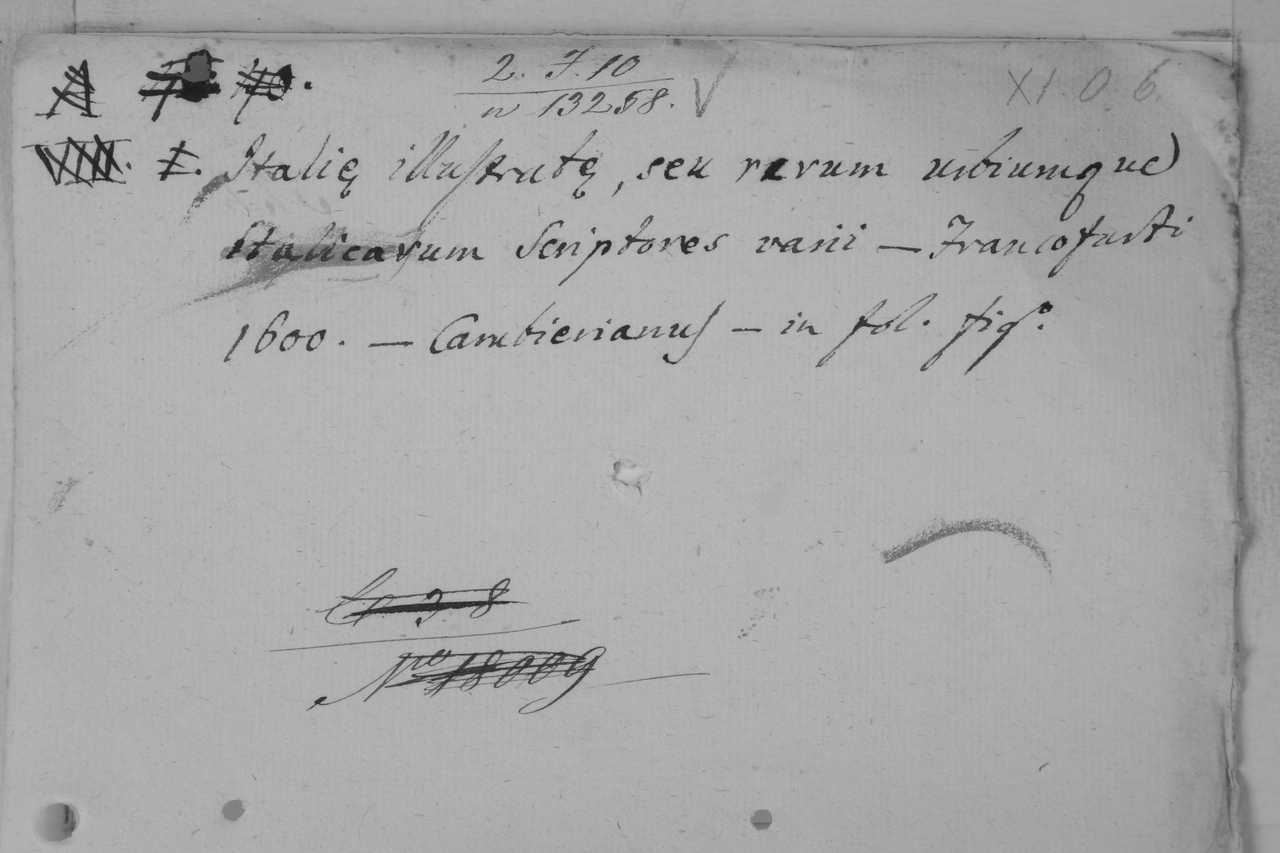 2. J. 10
n 13258. √
XI. 0. 6.
VIII. I. Italię illustratę, seu rerum urbiumque
Italicarum Scriptores varii — Francofurti
1600. — Cambierianus — in fol. fig.
Nro 18009